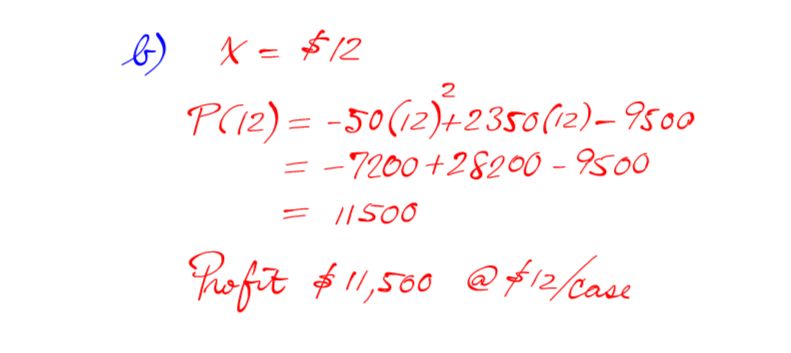 b) X = $12
P(12) = -50(12)²+2350(12)-9500
= -7200+28200-9500
= 11500
Profit $11,500 @ $12/case